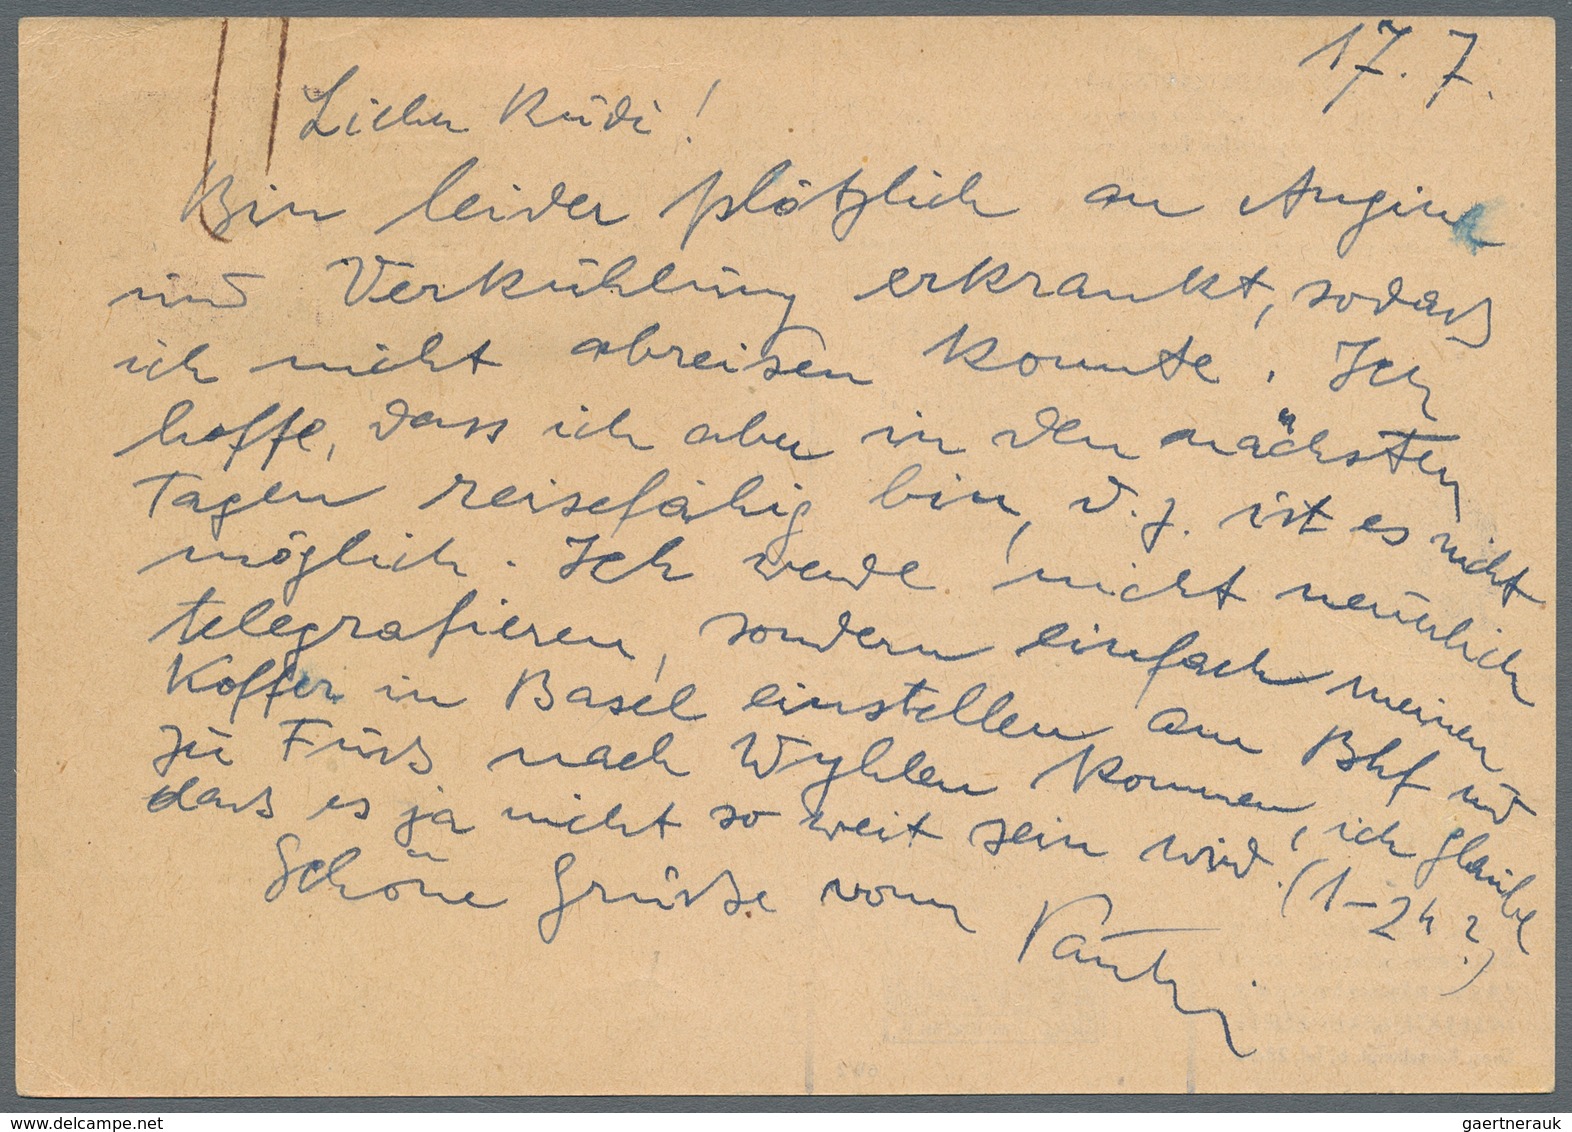 17.7.
Lieber Rudi!
Bin leider plötzlich an Angina
und Verkühlung erkrankt, sodaß
ich nicht abreisen konnte. Ich
hoffe, dass ich aber in den nächsten
Tagen reisefähig bin, d.z. ist es nicht
möglich. Ich werde nicht neuerlich
telegrafieren, sondern einfach meinen
Koffer in Basel einstellen am Bhf und
zu Fuß nach Wyhlen kommen, ich glaube
dass es ja nicht so weit sein wird. (1-2h?)
Schöne Grüße vom
www.delcampe.net
gaertnerauk